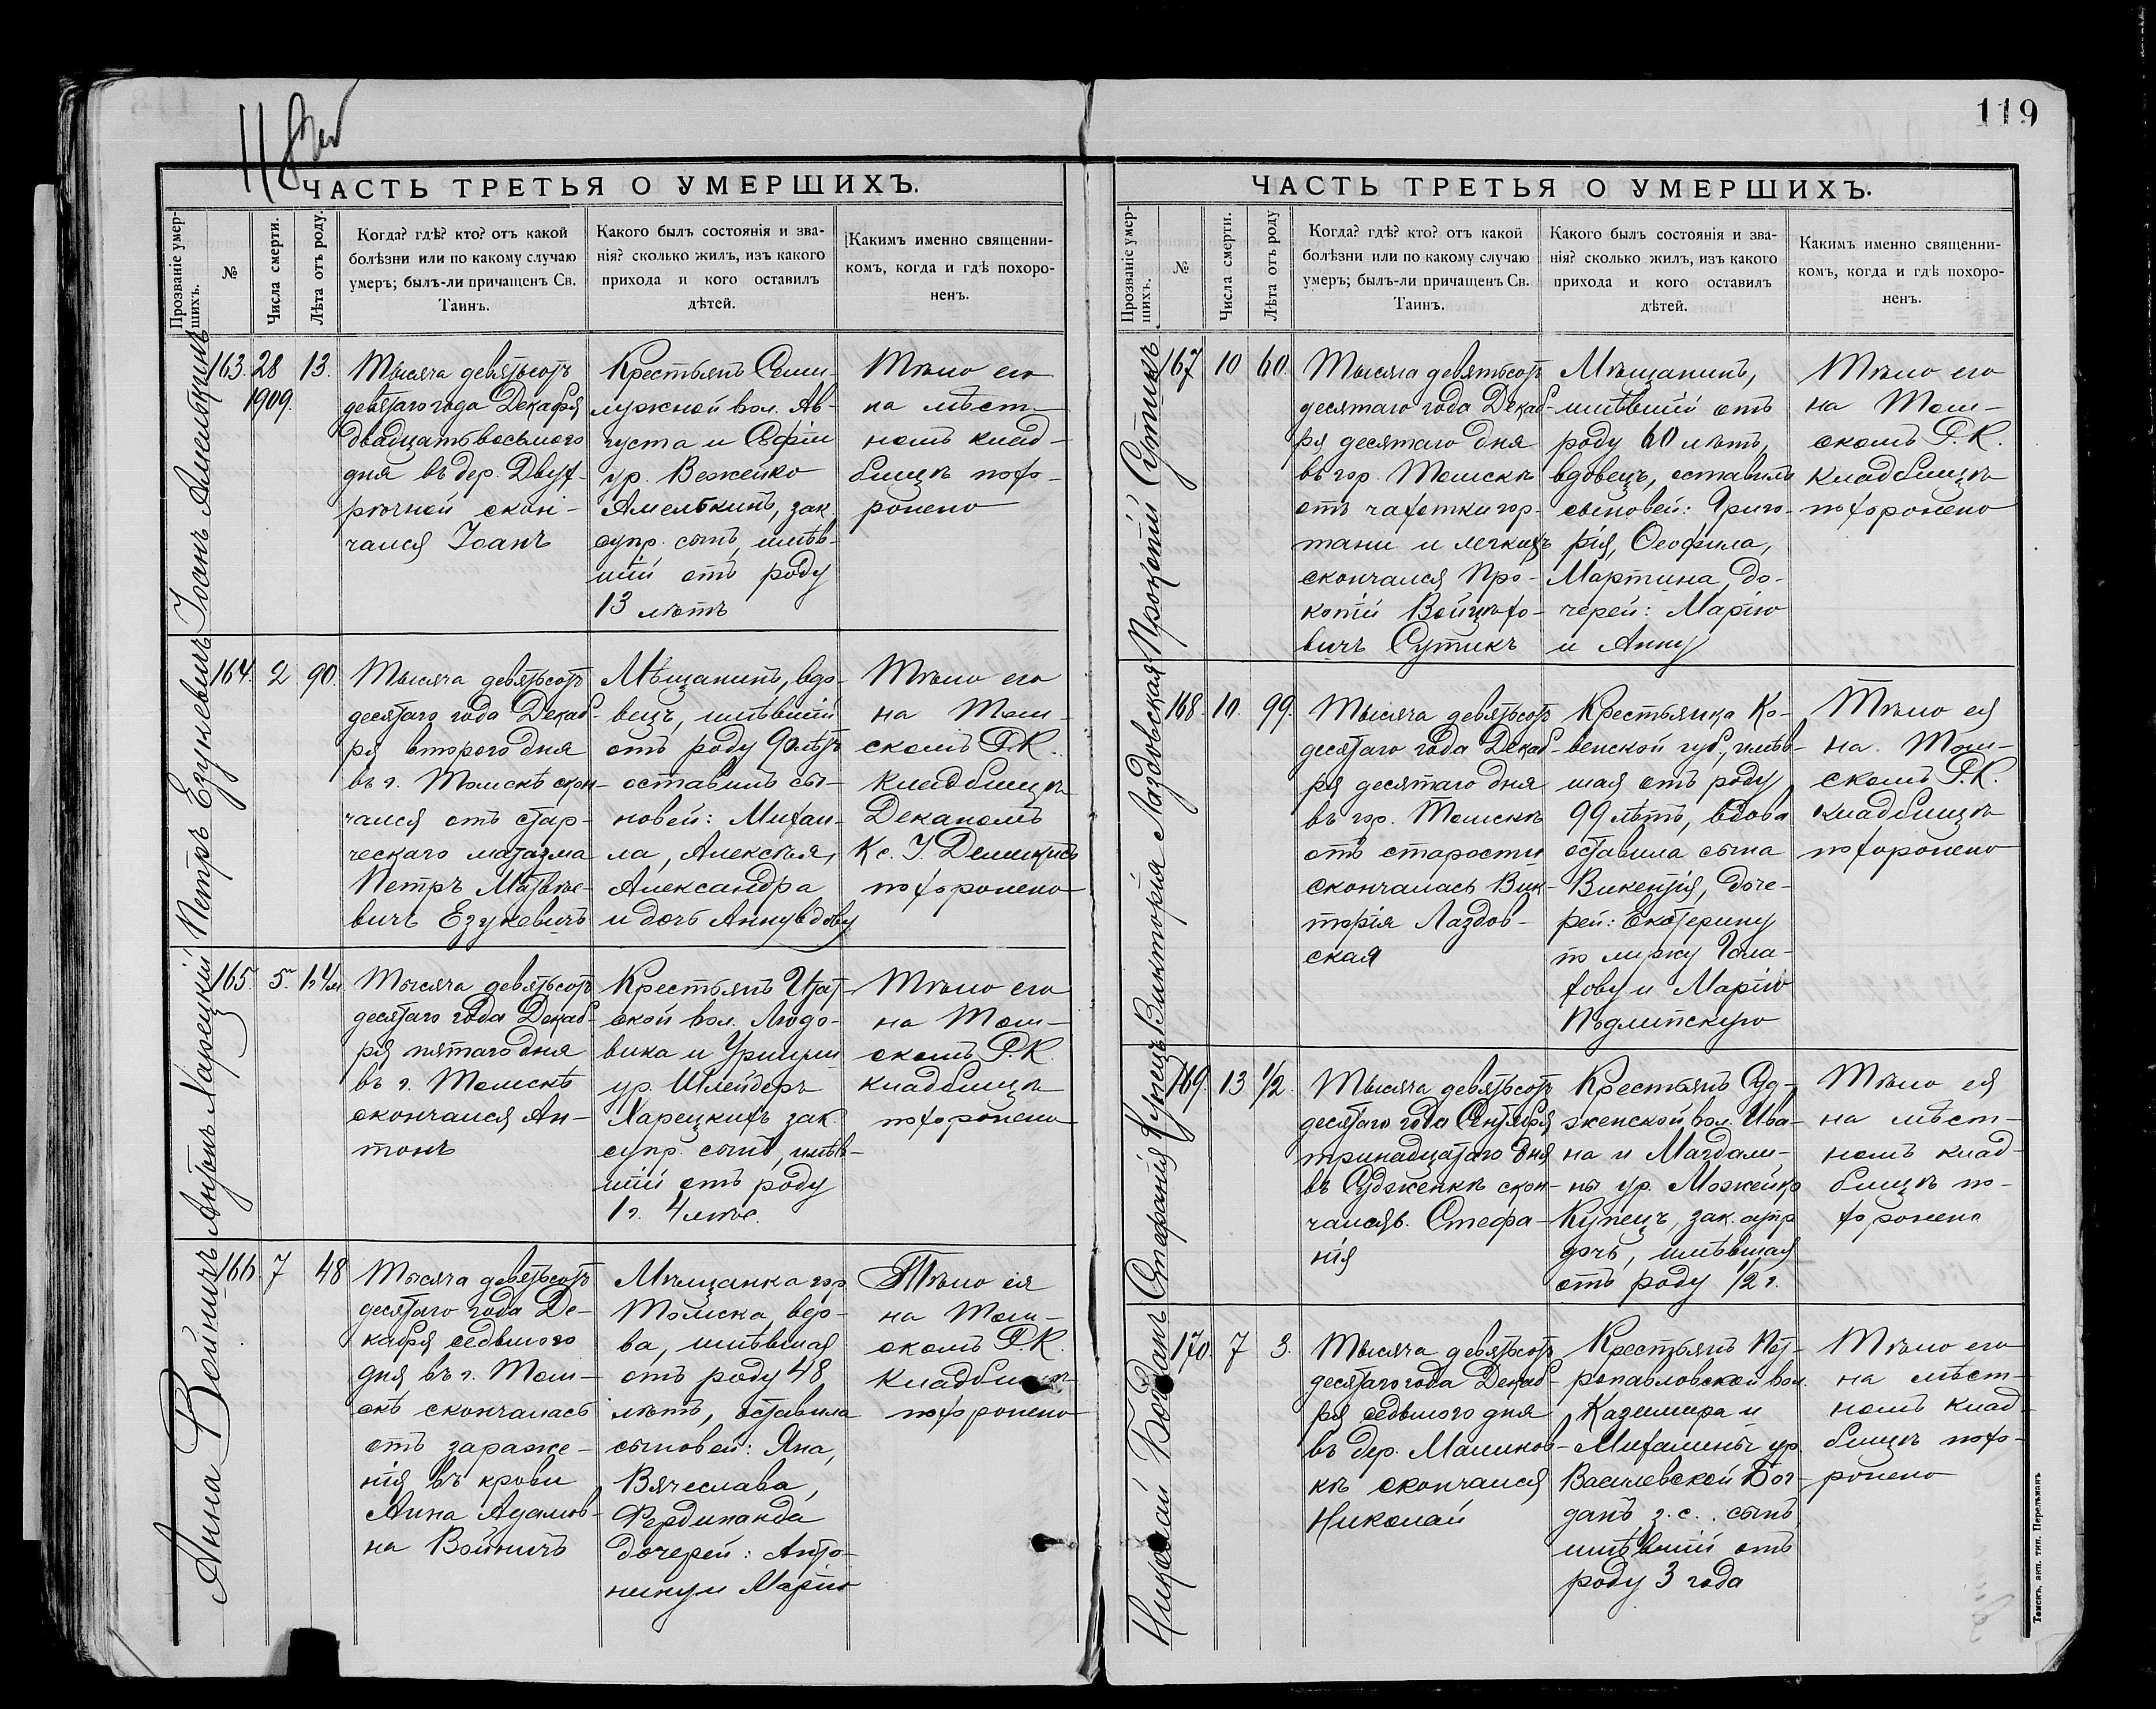 118 об
ЧАСТЬ ТРЕТЬЯ О УМЕРШИХЪ.
Прозваніе умер-
шихъ.
№
Числа смерти.
Лѣта отъ роду.
Когда? гдѣ? кто? отъ какой
болѣзни или по какому случаю
умеръ; былъ-ли причащенъ Св.
Таинъ.
Какого былъ состоянія и зва-
нія? сколько жилъ, изъ какого
прихода и кого оставилъ
дѣтей.
Какимъ именно священни-
комъ, когда и гдѣ похоро-
ненъ.
Іоанъ Амелькинъ
163.
28
1909.
13.
Тысяча девятьсотъ
девятаго года Декабря
двадцать восьмого
дня въ дер. Двух-
рѣчной скон-
чался Іоанъ
Крестьянъ Семи-
лужной вол. Ав-
густа и Софіи
ур. Вежейко
Амелькинъ, зак.
супр. сынъ, имѣв-
шій отъ роду
13 лѣтъ
Тѣло его
на мѣст-
номъ клад-
бищѣ похо-
ронено
Петръ Езукевичъ
164.
2
90.
Тысяча девятьсотъ
десятаго года Декаб-
ря второго дня
въ г. Томскѣ скон-
чался отъ стар-
ческаго маразма
Петръ Матвѣе-
вичъ Езукевичъ
Мѣщанинъ, вдо-
вецъ, имѣвшій
отъ роду 90 лѣтъ
оставилъ сы-
новей: Михаи-
ла, Алексѣя,
Александра
и дочь Анну вдову
Тѣло его
на Том-
скомъ Р.К.
кладбищѣ
Деканомъ
Кс. І. Демикисъ
похоронено
Антонъ Марецкій
165.
5.
1 г 4 м
Тысяча девятьсотъ
десятаго года Декаб-
ря пятаго дня
въ г. Томскѣ
скончался Ан-
тонъ
Крестьянъ Итат-
ской вол. Людо-
вика и Уршули
ур. Шлейдеръ
Марецкихъ зак.
супр. сынъ, имѣв-
шій отъ роду
1 г. 4 мѣс.
Тѣло его
на Том-
скомъ Р.К.
кладбищѣ
похоронено
Анна Войничъ
166
7
48
Тысяча девятьсотъ
десятаго года Де-
кабря седьмого
дня въ г. Том-
скѣ скончалась
отъ зараже-
нія въ крови
Анна Адамов-
на Войничъ
Мѣщанка гор
Томска, вдо-
ва, имѣвшая
отъ роду 48
лѣтъ, оставила
сыновей: Яна,
Вячеслава,
Фердинанда
дочерей: Анто-
нину и Марію
Тѣло ея
на Том-
скомъ Р.К.
кладбищѣ
похоронено
119
ЧАСТЬ ТРЕТЬЯ О УМЕРШИХЪ.
Прозваніе умер-
шихъ.
№
Числа смерти.
Лѣта отъ роду
Когда? гдѣ? кто? отъ какой
болѣзни или по какому случаю
умеръ; былъ-ли причащенъ Св.
Таинъ.
Какого былъ состоянія и зва-
нія? сколько жилъ, изъ какого
прихода и кого оставилъ
дѣтей.
Какимъ именно священни-
комъ, когда и гдѣ похоро-
ненъ.
Прокопій Сутикъ
167
10
60.
Тысяча девятьсотъ
десятаго года Декаб-
ря десятаго дня
въ гор. Томскѣ
отъ чахотки гор-
тани и легкихъ
скончался Про-
копій Войцѣхо-
вичъ Сутикъ
Мѣщанинъ,
имѣвшій отъ
роду 60 лѣтъ,
вдовецъ, оставилъ
сыновей: Григо-
рія, Ѳеофила,
Мартина, до-
черей: Марію
и Анну
Тѣло его
на Том-
скомъ Р.К.
кладбищѣ
похоронено
Викторія Лаздовская
168.
10.
99.
Тысяча девятьсотъ
десятаго года Декаб-
ря десятаго дня
въ гор. Томскѣ
отъ старости
скончалась Вик-
торія Лаздов-
ская
Крестьянка Ко-
венской губ., имѣв-
шая отъ роду
99 лѣтъ, вдова
оставила сына
Викентія, доче-
рей: Екатерину
по мужу Гала-
хову и Марію
Подлипскую
Тѣло ея
на Том-
скомъ Р.К.
кладбищѣ
похоронено
Стефанія Купецъ
169.
13
1/2.
Тысяча девятьсотъ
десятаго года Сентября
тринадцатаго дня
въ Судженкѣ скон-
чалась Стефа-
нія
Крестьянъ Суд-
женской вол. Ива-
на и Магдали-
ны ур. Можейко
Купецъ, зак. супр
дочь, имѣвшая
отъ роду 1/2 г.
Тѣло ея
на мѣст-
номъ клад-
бищѣ по-
хоронено
Николай Богданъ
170.
7
3.
Тысяча девятьсотъ
десятаго года Декаб-
ря седьмого дня
въ дер. Малинов-
кѣ скончался
Николай
Крестьянъ Пет-
ропавловской вол.
Казимира и
Михалины ур.
Василевской Бог-
данъ з. с. сынъ
имѣвшій отъ
роду 3 года
Тѣло его
на мѣст-
номъ клад-
бищѣ похо-
ронено
Томскъ, акп. тип. Перельманъ